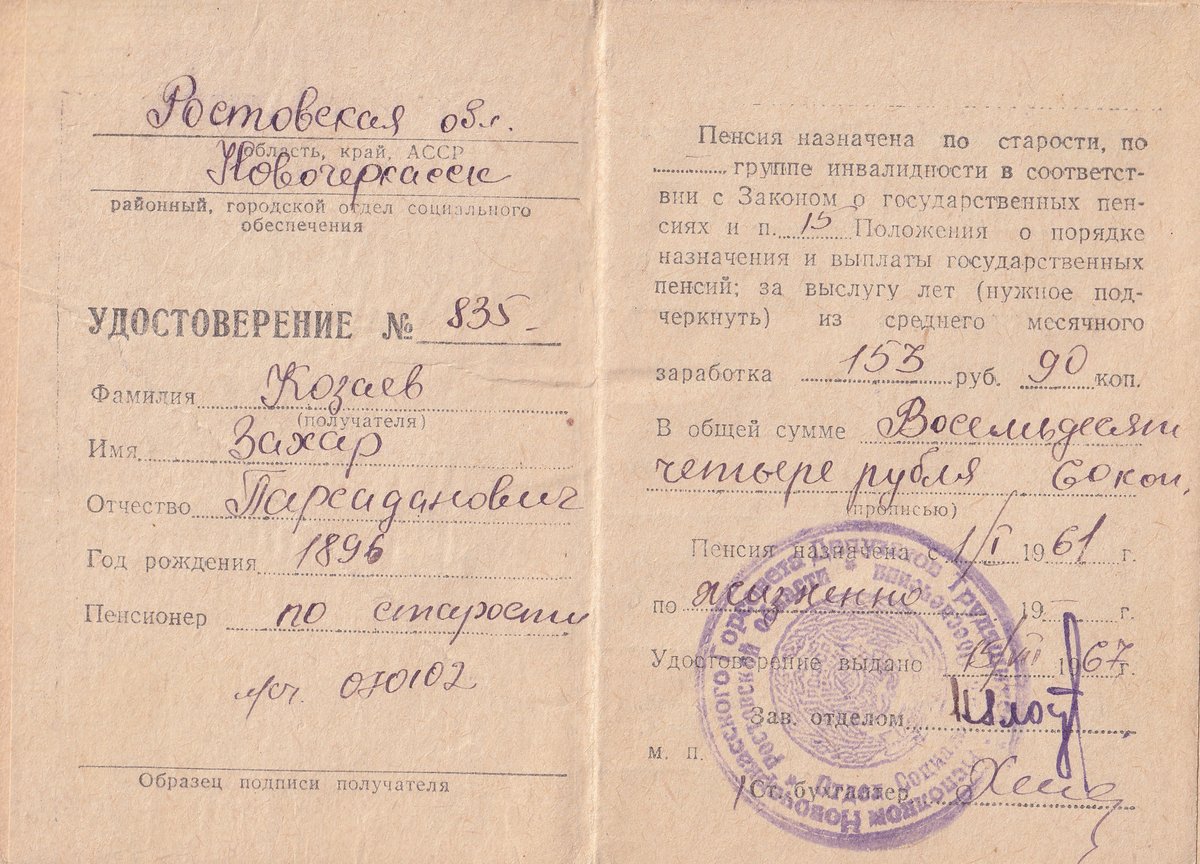 Ростовская обл.
область, край, АССР
Новочеркасск
районный, городской отдел социального
обеспечения
УДОСТОВЕРЕНИЕ № 835-
Фамилия Козаев
(получателя)
Имя Захар
Отчество Парсаданович
Год рождения 1896
Пенсионер по старости
л/сч. 070102
Образец подписи получателя
Пенсия назначена по старости, по
группе инвалидности в соответст-
вии с Законом о государственных пен-
сиях и п. 15 Положения о порядке
назначения и выплаты государственных
пенсий; за выслугу лет (нужное под-
черкнуть) из среднего месячного
заработка 153 руб. 90 коп.
В общей сумме Восемьдесят
четыре рубля 60 коп.
(прописью)
Пенсия назначена с 1/I 1961 г.
по жизненно 19— г.
Удостоверение выдано 1967 г.
Зав. отделом
М. П.
Ст. бухгалтер